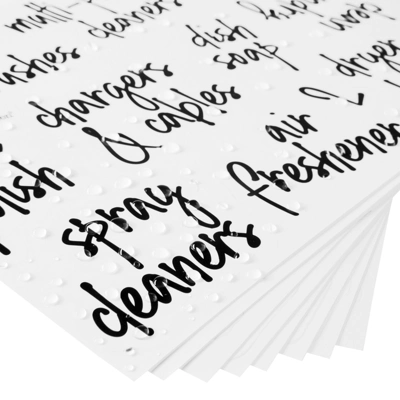 multi-
cleaners
dish
soap
wrap
ushes
chargers
& cables
dryer
air
freshener
lish
spray
cleaners